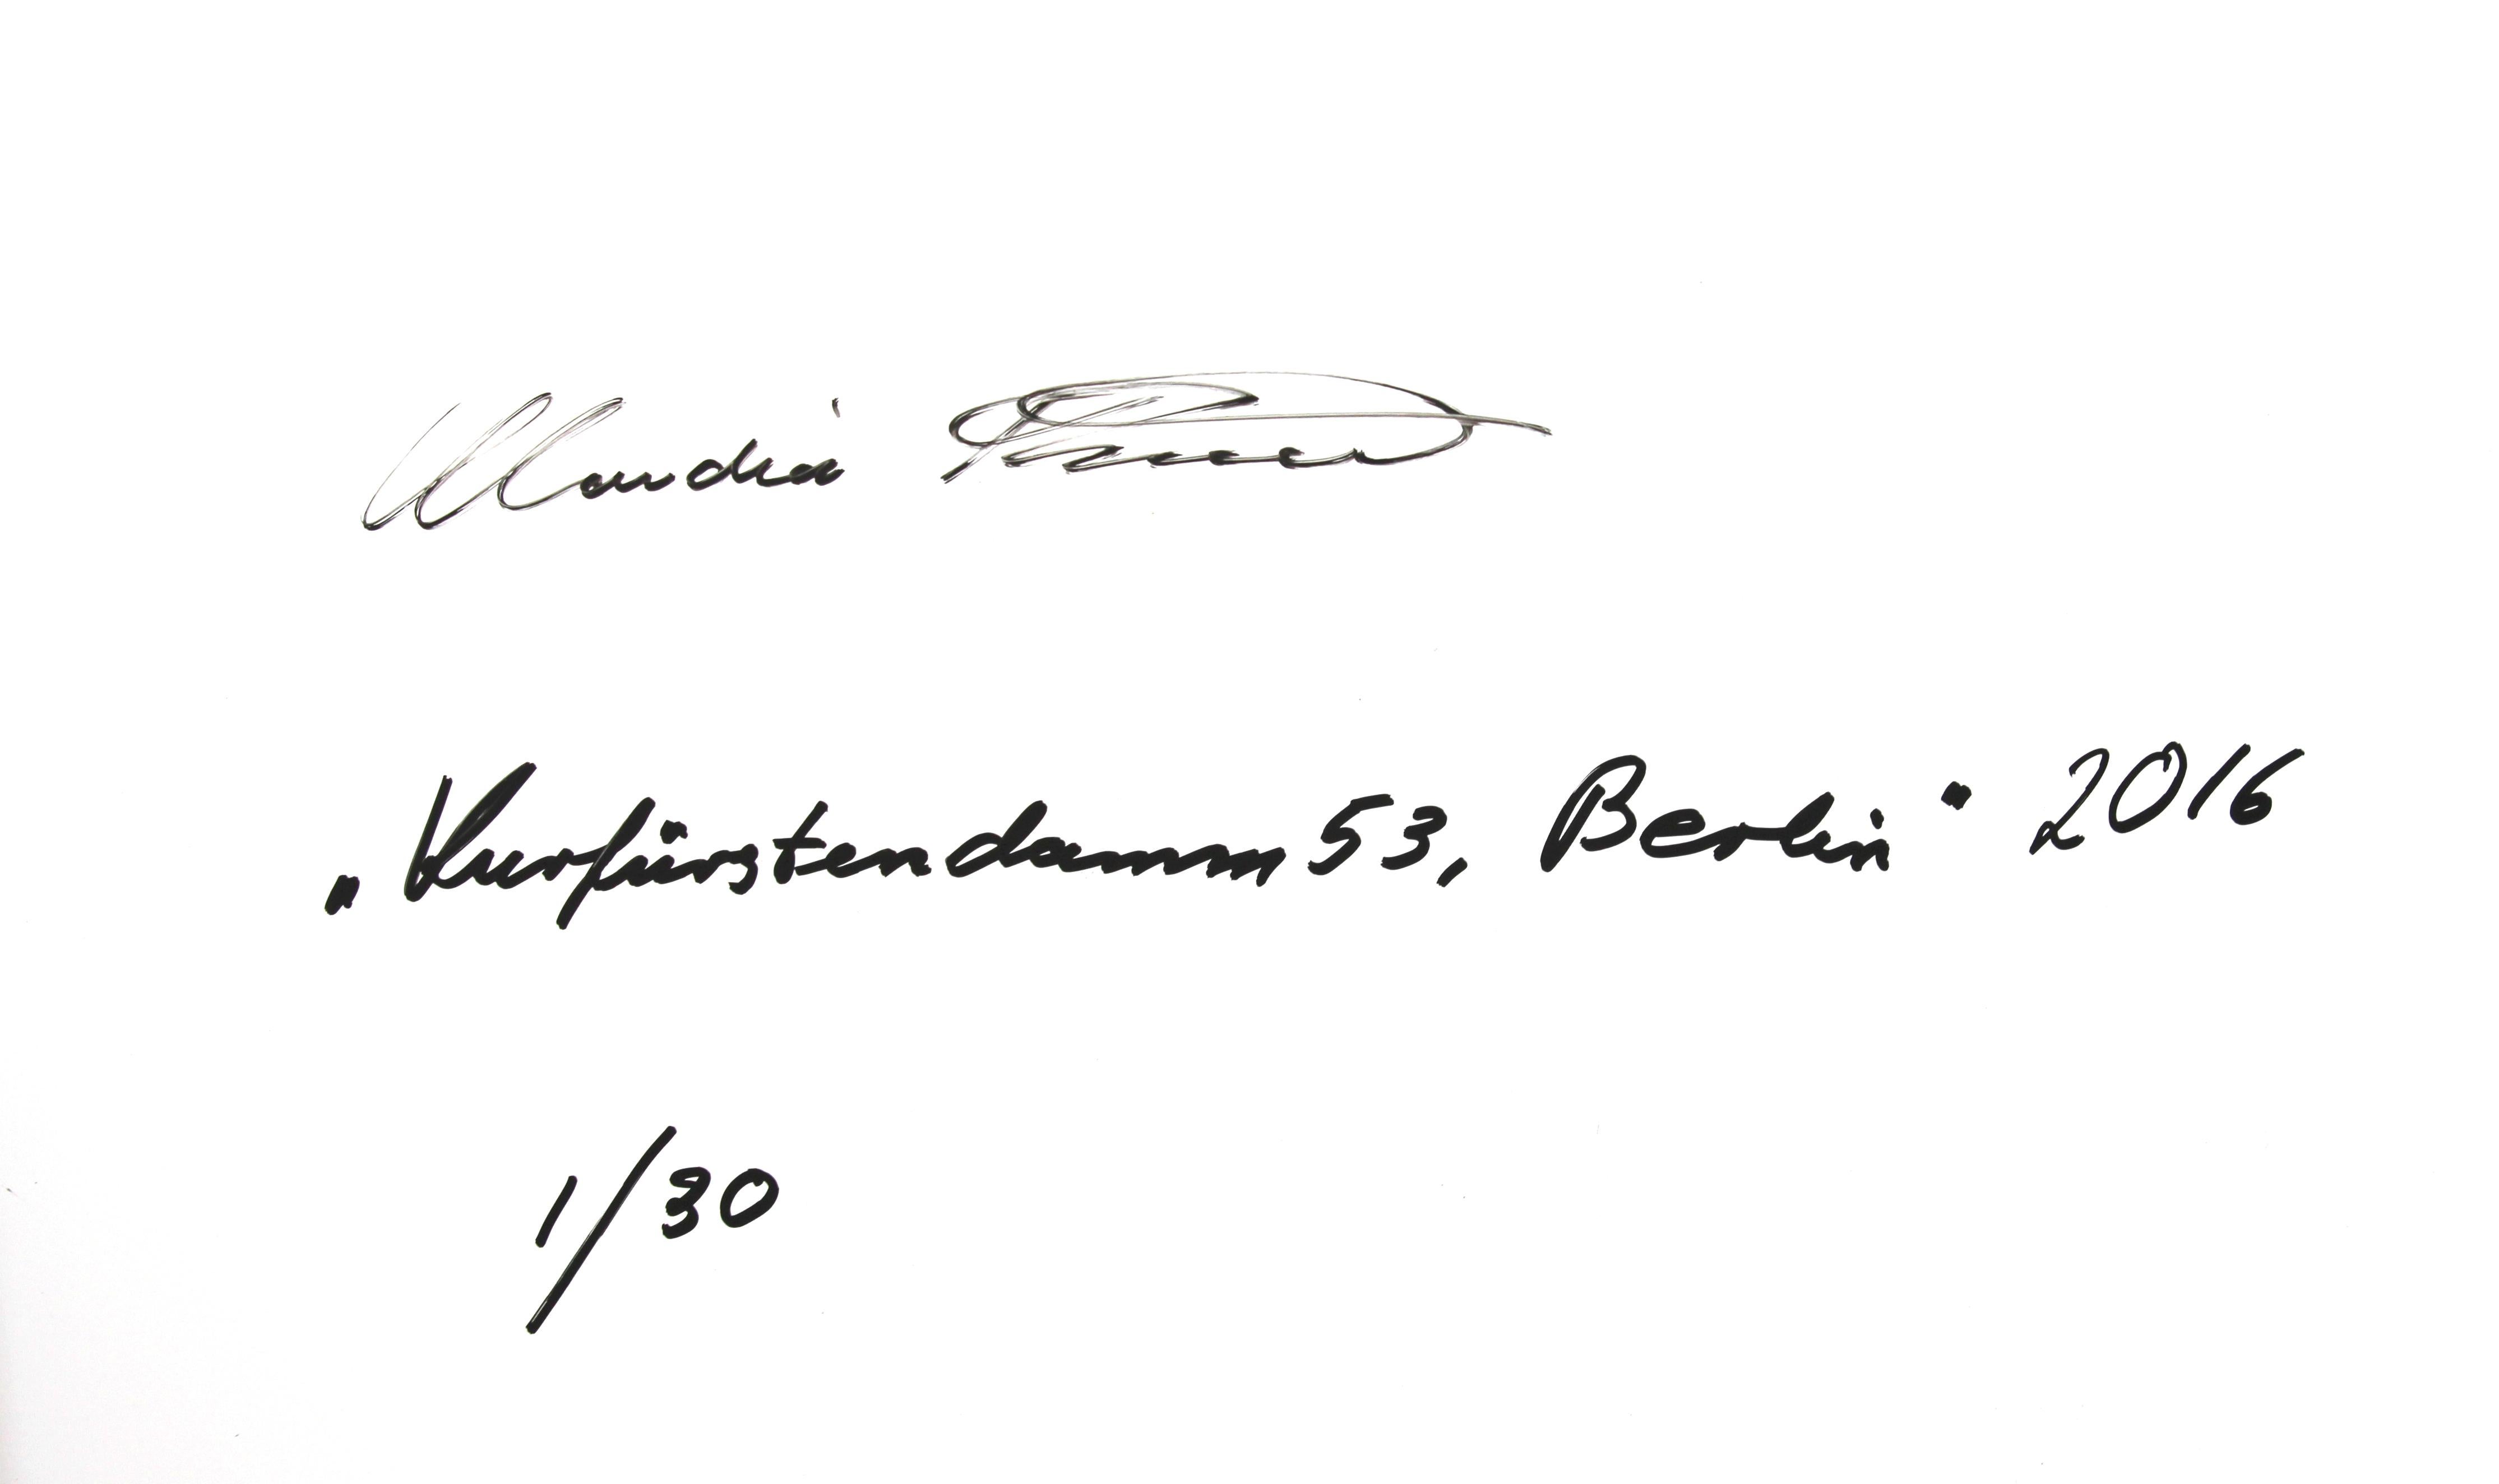 Claudia
„Kurfürstendamm 53, Berlin“ 2016
1/30